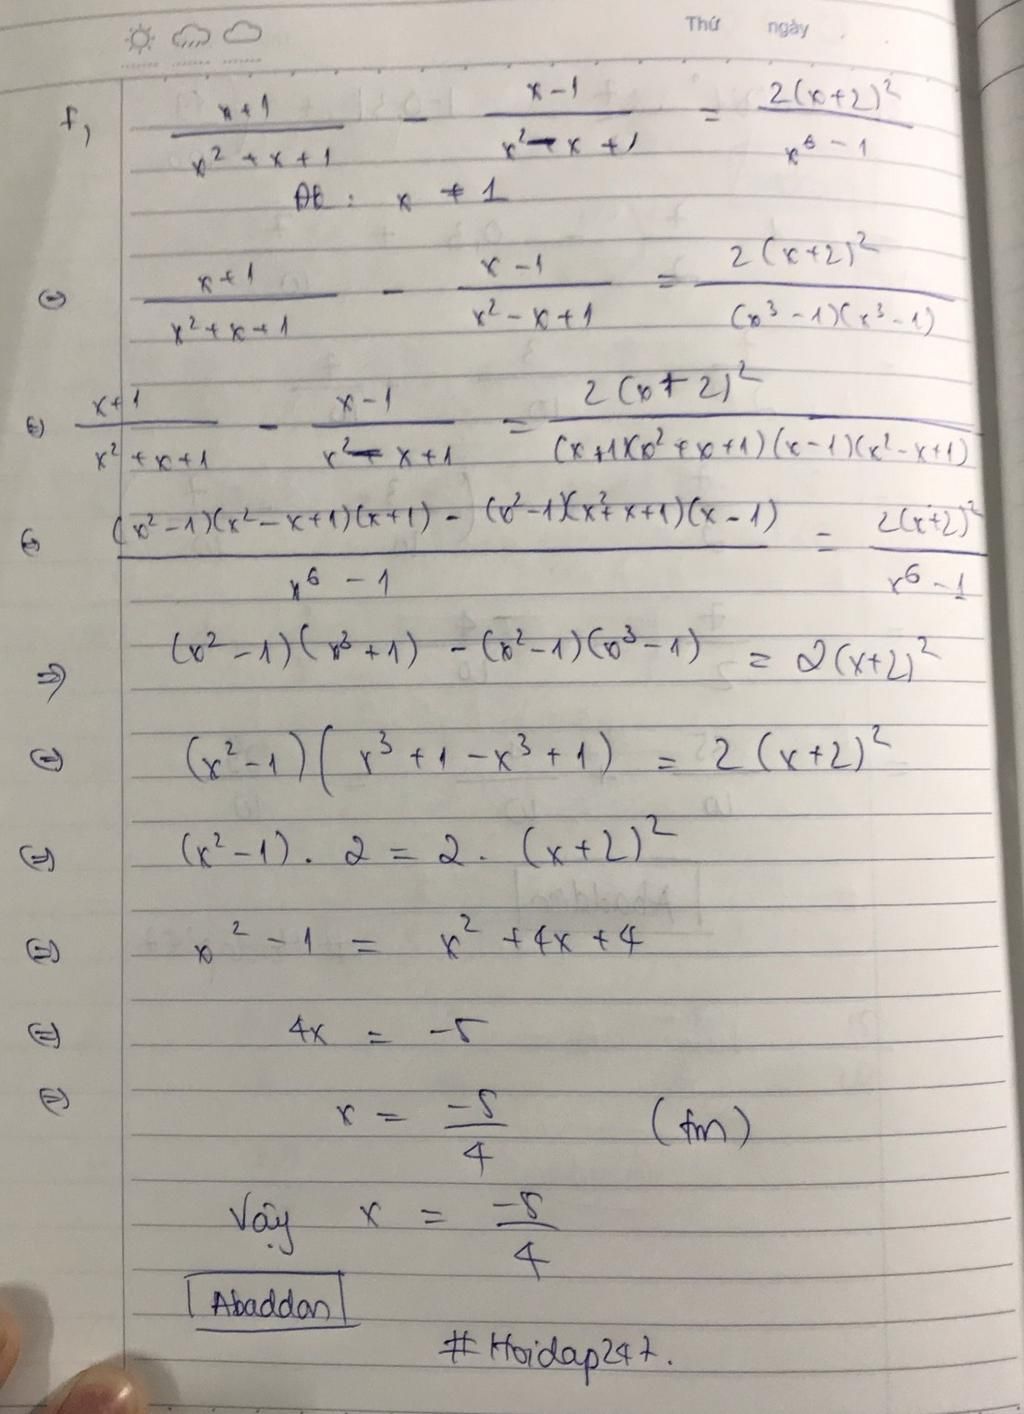 Thứ ngày
f, (x+1)/(x² + x + 1) - (x-1)/(x² - x + 1) = 2(x+2)²/(x⁶ - 1)
ĐK : x ≠ 1
⇔ (x+1)/(x² + x + 1) - (x-1)/(x² - x + 1) = 2(x+2)²/((x³ - 1)(x³ - 1))
⇔ (x+1)/(x² + x + 1) - (x-1)/(x² - x + 1) = 2(x+2)²/((x+1)(x² + x + 1)(x-1)(x² - x + 1))
⇔ ((x² - 1)(x² - x + 1)(x+1) - (x² - 1)(x² + x + 1)(x - 1))/(x⁶ - 1) = 2(x+2)²/(x⁶ - 1)
⇒ (x² - 1)(x³ + 1) - (x² - 1)(x³ - 1) = 2(x+2)²
⇔ (x² - 1)(x³ + 1 - x³ + 1) = 2(x+2)²
⇔ (x² - 1). 2 = 2. (x+2)²
⇔ x² - 1 = x² + 4x + 4
⇔ 4x = -5
⇔ x = -5/4 (tm)
Vậy x = -5/4
Abaddon
#Hoidap247.